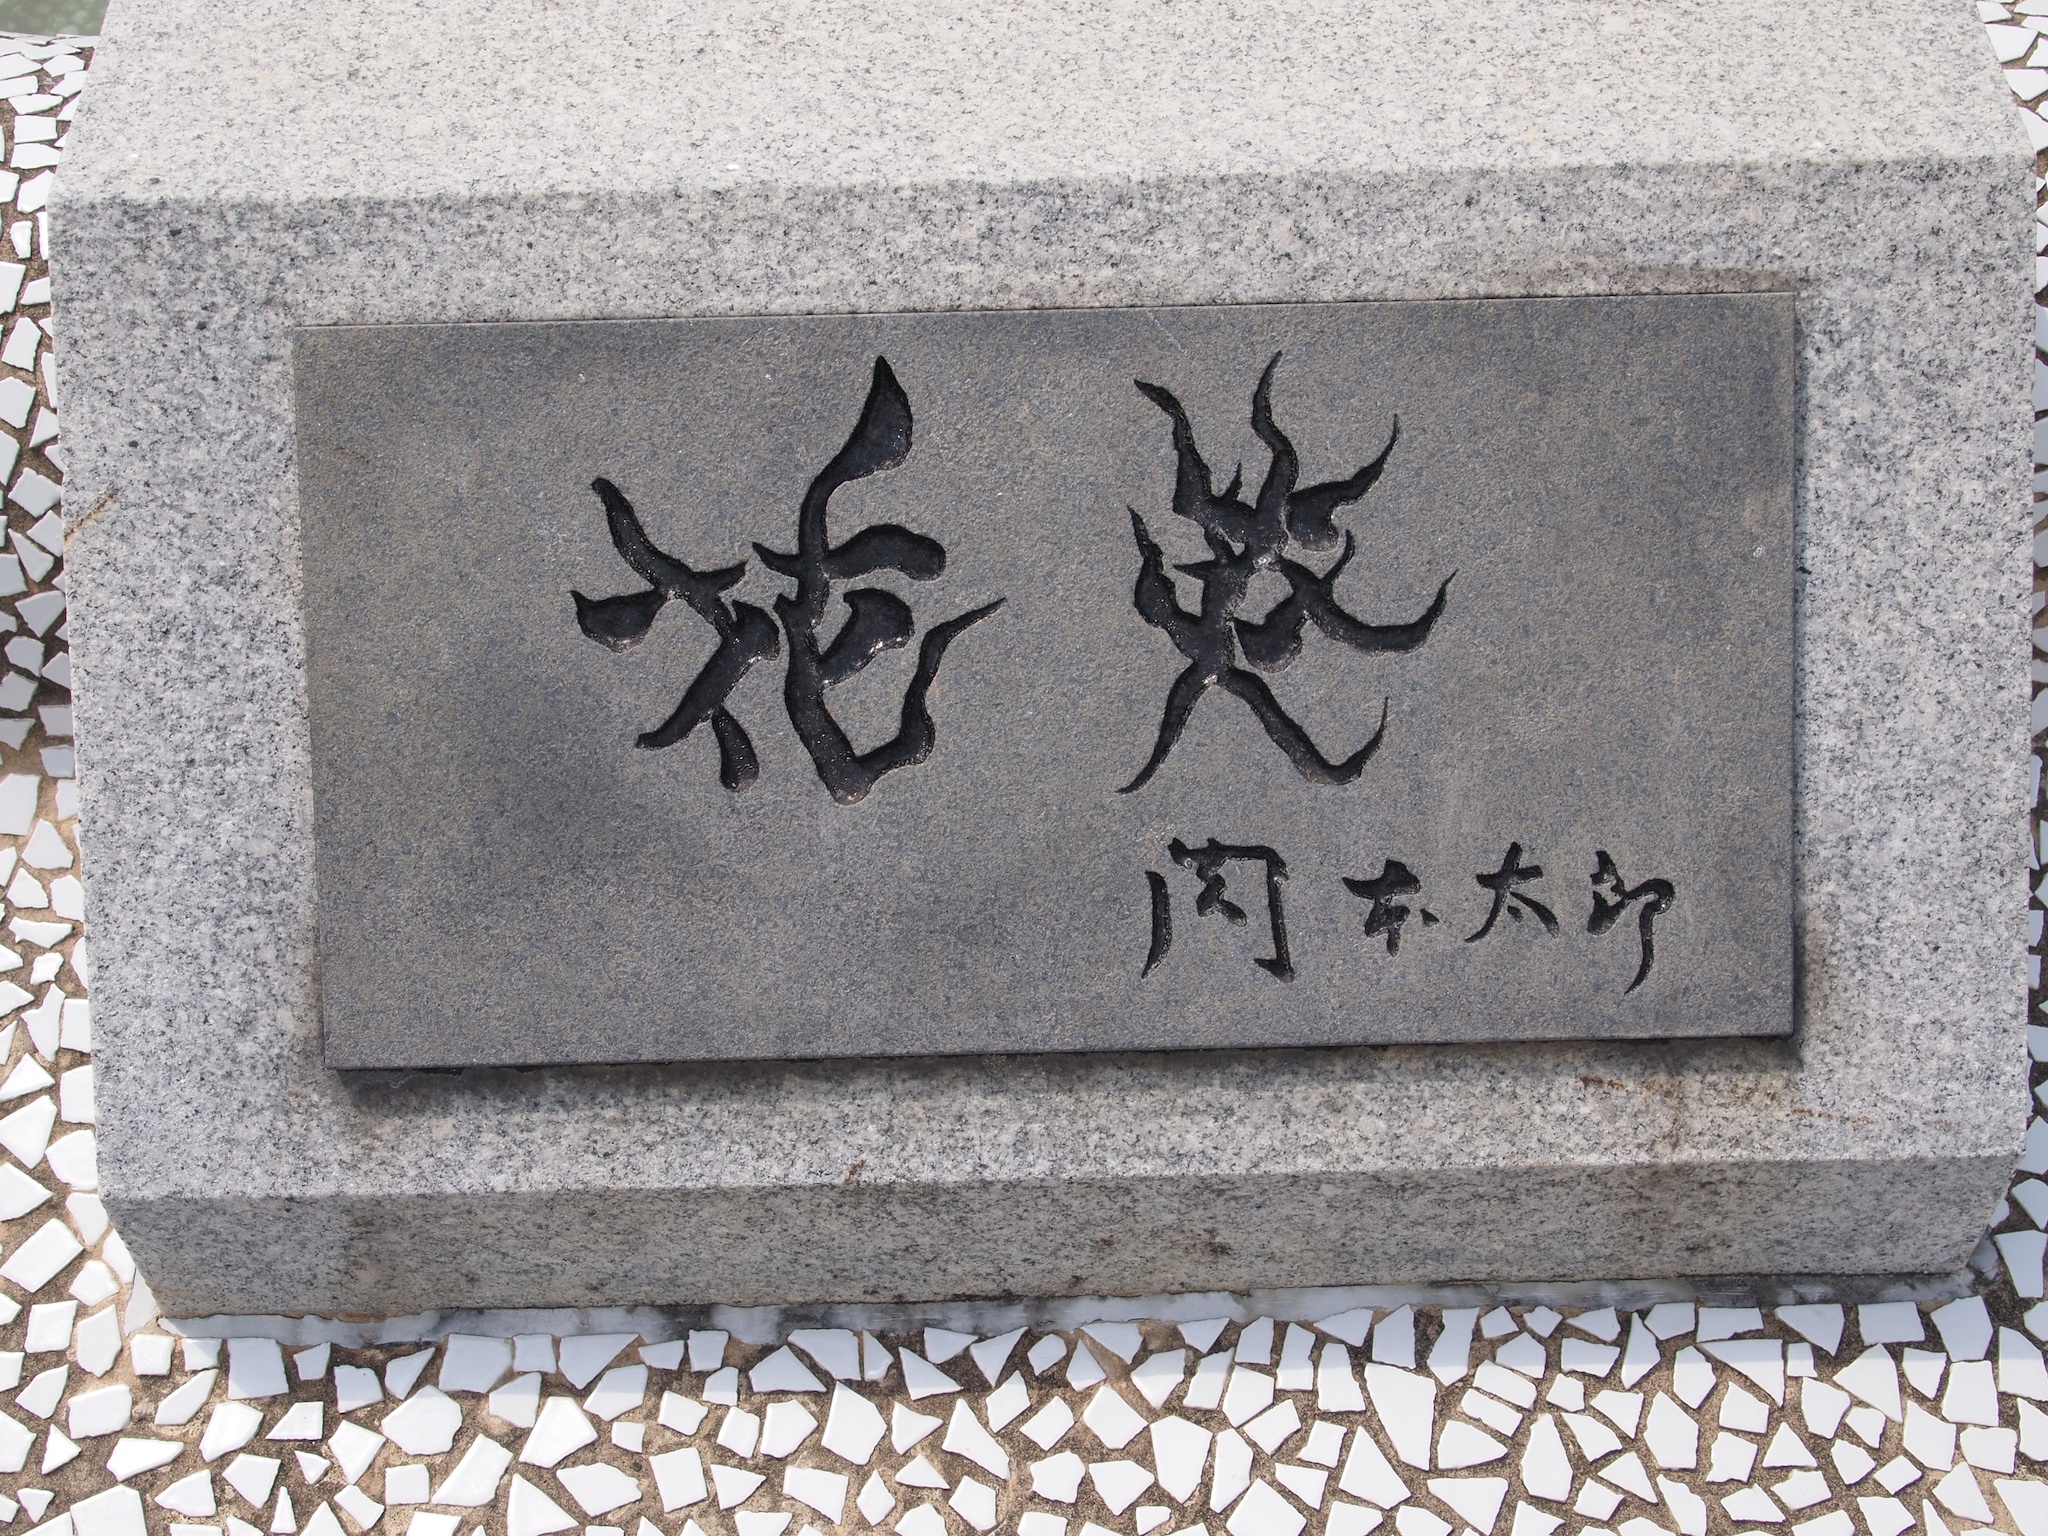 花炎
岡本太郎